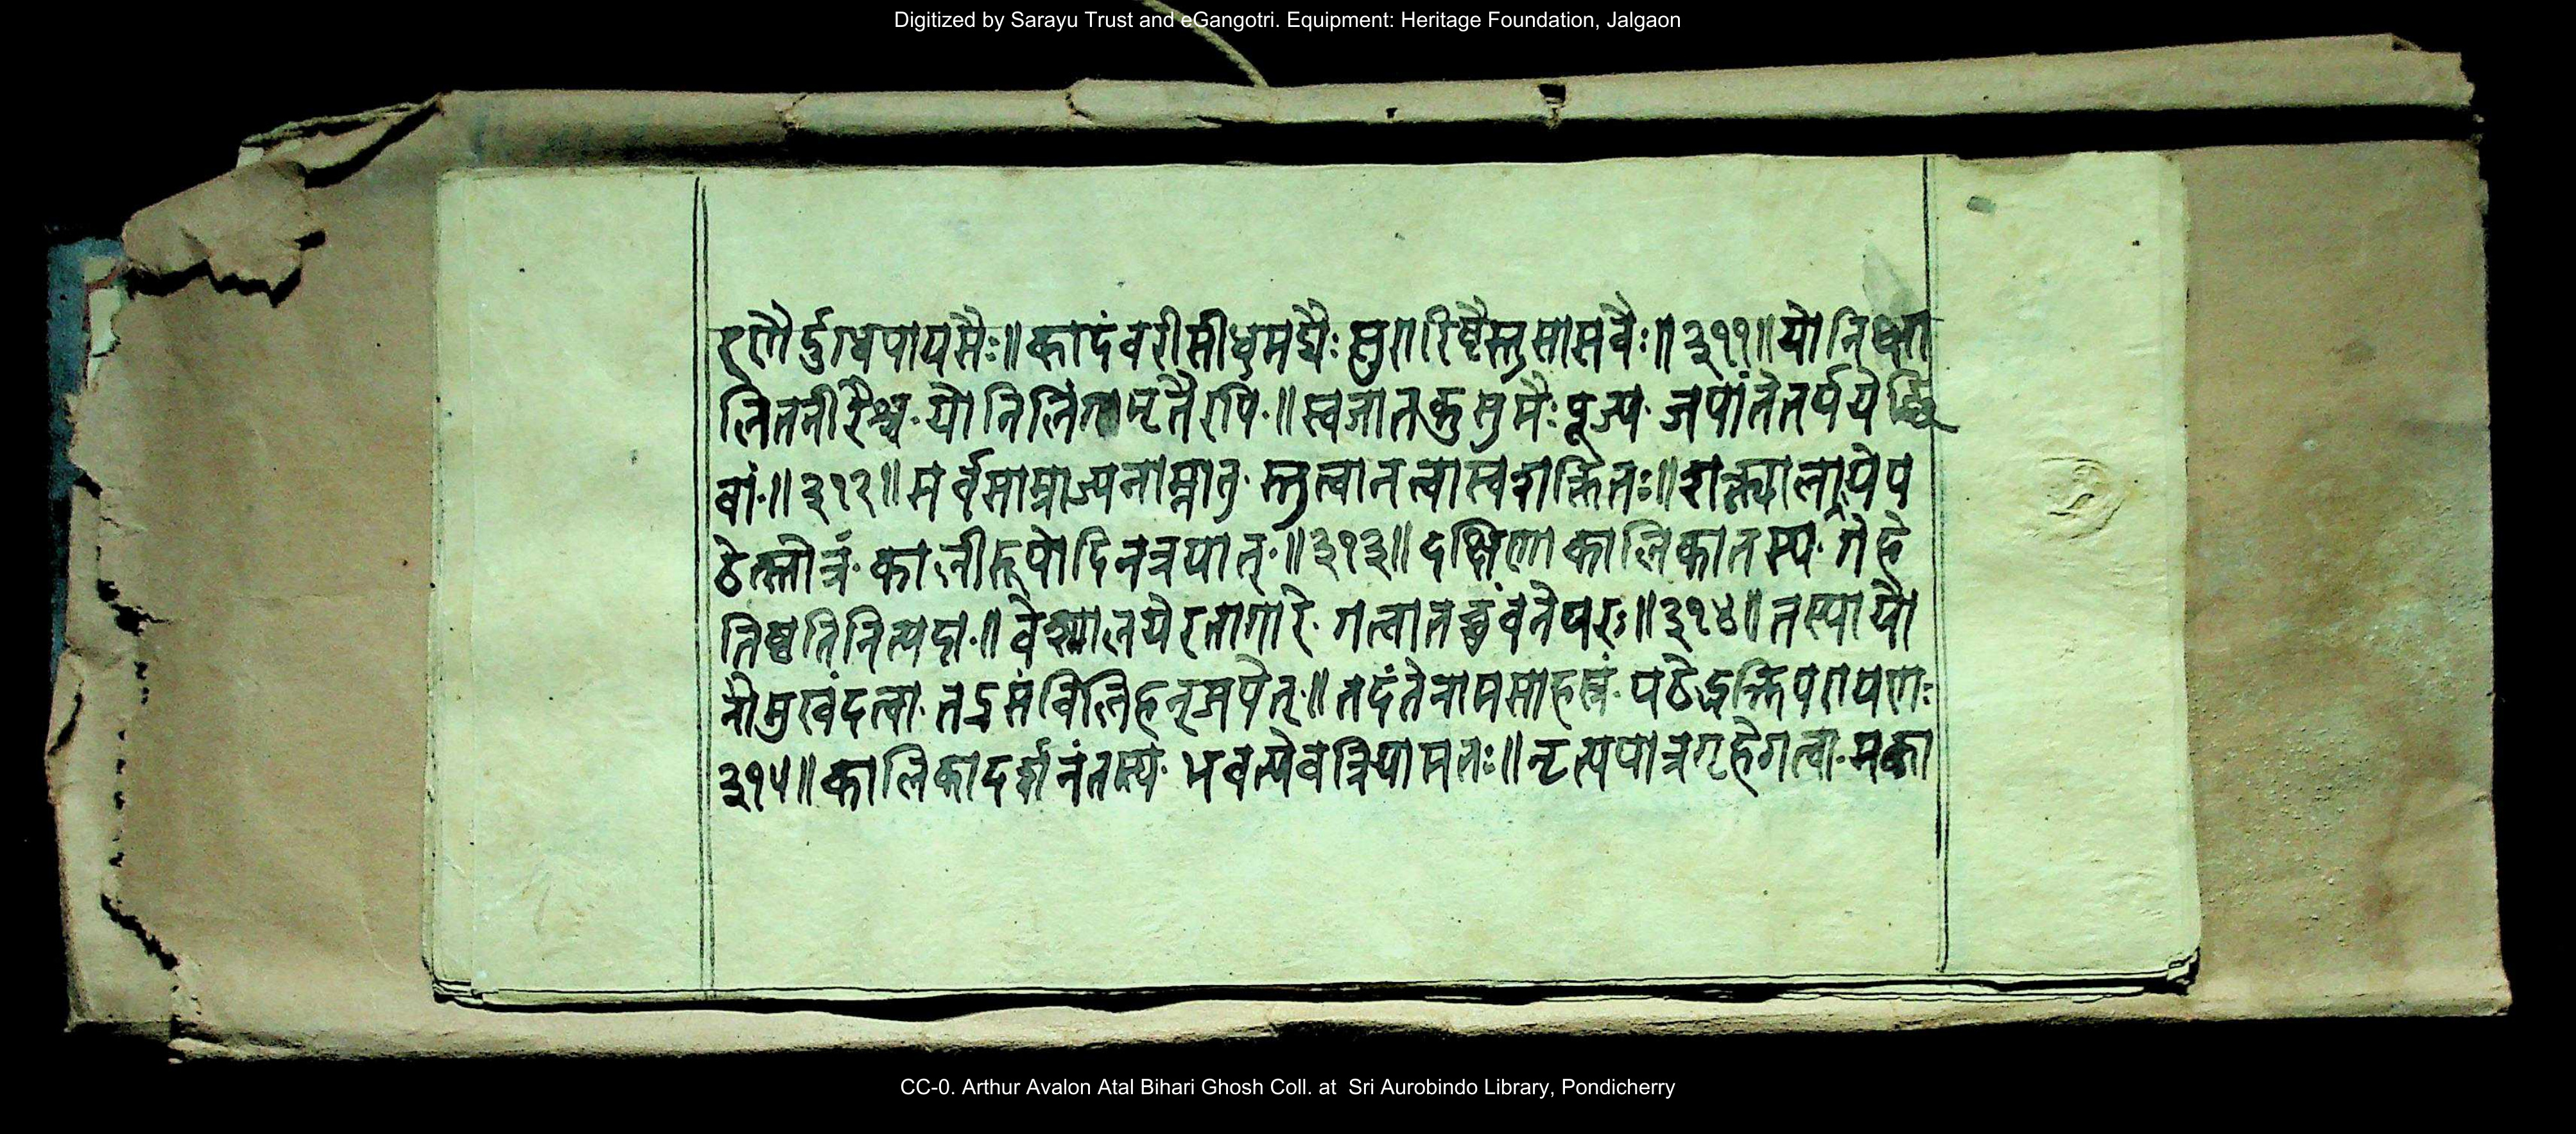 Digitized by Sarayu Trust and eGangotri. Equipment: Heritage Foundation, Jalgaon
रणैर्दुग्धपायसैः॥ कादंवरीसीधुमद्यैः सुरारिष्टैस्तुसासवैः॥ ३११॥ योनिक्षा
लितनीरैश्च योनिलिंगामृतैरपि॥ स्वजातकुसुमैः पूज्य जपांतेतर्पयेच्छि
वां॥ ३१२॥ सर्वसाम्राज्यनाम्नातु स्तुत्वानत्वास्वशक्तितः॥ शक्त्यालापे प
ठेत्स्तोत्रं कालीरूपोदिनत्रयात्॥ ३१३॥ दक्षिणाकालिकातस्य गेहे
तिष्ठतिनित्यदा॥ वेश्यालयेरतागारे गत्वातच्चुंवनेपरः॥ ३१४॥ तस्यायो
नीमुखंदत्वा तद्रसंविलिहन्जपेत्॥ तदंतेनामसाहस्रं पठेद्भक्तिपरायणः
३१५॥ कालिकादर्शनंतस्य भवत्येवत्रियामतः॥ नृत्यपात्रगृहेगत्वा मका
CC-0. Arthur Avalon Atal Bihari Ghosh Coll. at Sri Aurobindo Library, Pondicherry